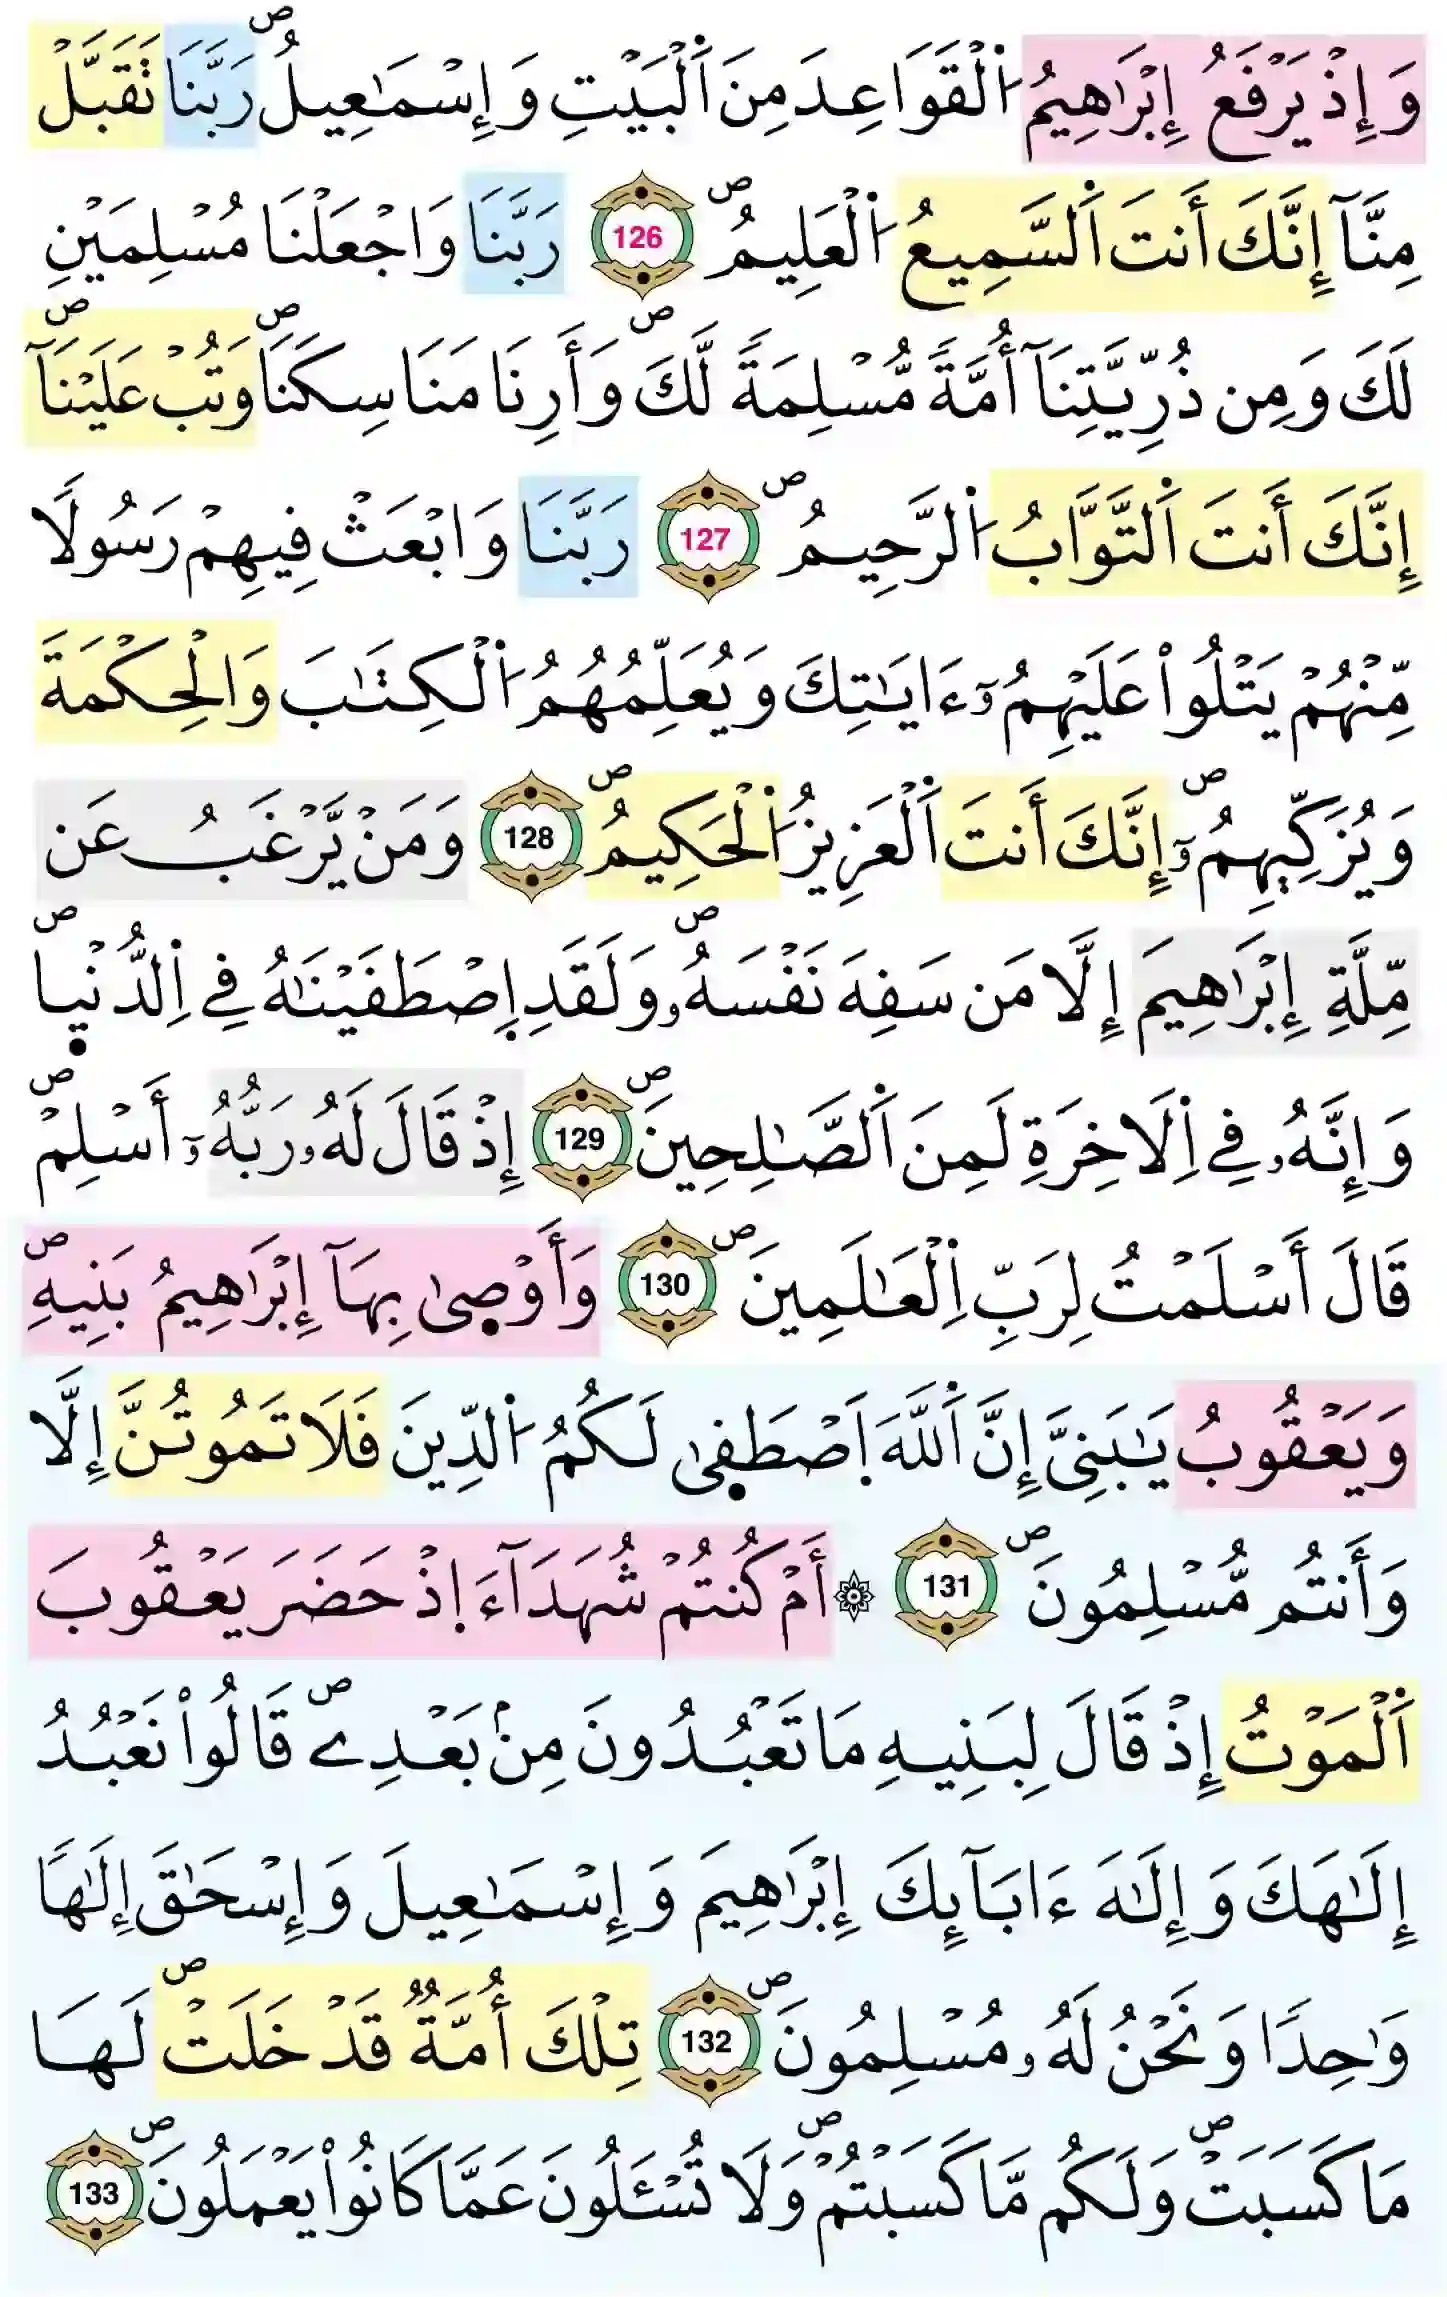 وَإِذْ يَرْفَعُ إِبْرَٰهِيمُ اُ۬لْقَوَاعِدَ مِنَ اَ۬لْبَيْتِ وَإِسْمَٰعِيلُۖ رَبَّنَا تَقَبَّلْ
مِنَّآ إِنَّكَ أَنتَ اَ۬لسَّمِيعُ اُ۬لْعَلِيمُۖ 126 رَبَّنَا وَاجْعَلْنَا مُسْلِمَيْنِ
لَكَ وَمِن ذُرِّيَّتِنَآ أُمَّةٗ مُّسْلِمَةٗ لَّكَۖ وَأَرِنَا مَنَاسِكَنَاۖ وَتُبْ عَلَيْنَآۖ
إِنَّكَ أَنتَ اَ۬لتَّوَّابُ اُ۬لرَّحِيمُۖ 127 رَبَّنَا وَابْعَثْ فِيهِمْ رَسُولاٗ
مِّنْهُمْ يَتْلُواْ عَلَيْهِمُۥٓ ءَايَٰتِكَ وَيُعَلِّمُهُمُ اُ۬لْكِتَٰبَ وَالْحِكْمَةَ
وَيُزَكِّيهِمُۥٓۖ إِنَّكَ أَنتَ اَ۬لْعَزِيزُ اُ۬لْحَكِيمُۖ 128 وَمَنْ يَّرْغَبُ عَن
مِّلَّةِ إِبْرَٰهِيمَ إِلَّا مَن سَفِهَ نَفْسَهُۥۖ وَلَقَدِ اِ۪صْطَفَيْنَٰهُ فِے اِ۬لدُّنْي۪اۖ
وَإِنَّهُۥ فِے اِ۬لَاخِرَةِ لَمِنَ اَ۬لصَّٰلِحِينَۖ 129 إِذْ قَالَ لَهُۥ رَبُّهُۥٓ أَسْلِمْۖ
قَالَ أَسْلَمْتُ لِرَبِّ اِ۬لْعَٰلَمِينَۖ 130 وَأَوْص۪ىٰ بِهَآ إِبْرَٰهِيمُ بَنِيهِۖ
وَيَعْقُوبُ يَٰبَنِيَّ إِنَّ اَ۬للَّهَ اَ۪صْطَف۪ىٰ لَكُمُ اُ۬لدِّينَ فَلَا تَمُوتُنَّ إِلَّا
وَأَنتُم مُّسْلِمُونَۖ 131 ۞أَمْ كُنتُمْ شُهَدَآءَ اِ۪ذْ حَضَرَ يَعْقُوبَ
اَ۬لْمَوْتُ إِذْ قَالَ لِبَنِيهِ مَا تَعْبُدُونَ مِنۢ بَعْدِےۖ قَالُواْ نَعْبُدُ
إِلَٰهَكَ وَإِلَٰهَ ءَابَآئِكَ إِبْرَٰهِيمَ وَإِسْمَٰعِيلَ وَإِسْحَٰقَ إِلَٰهاٗ
وَٰحِداٗ وَنَحْنُ لَهُۥ مُسْلِمُونَۖ 132 تِلْكَ أُمَّةٞ قَدْ خَلَتْۖ لَهَا
مَا كَسَبَتْۖ وَلَكُم مَّا كَسَبْتُمْۖ وَلَا تُسْـَٔلُونَ عَمَّا كَانُواْ يَعْمَلُونَۖ 133